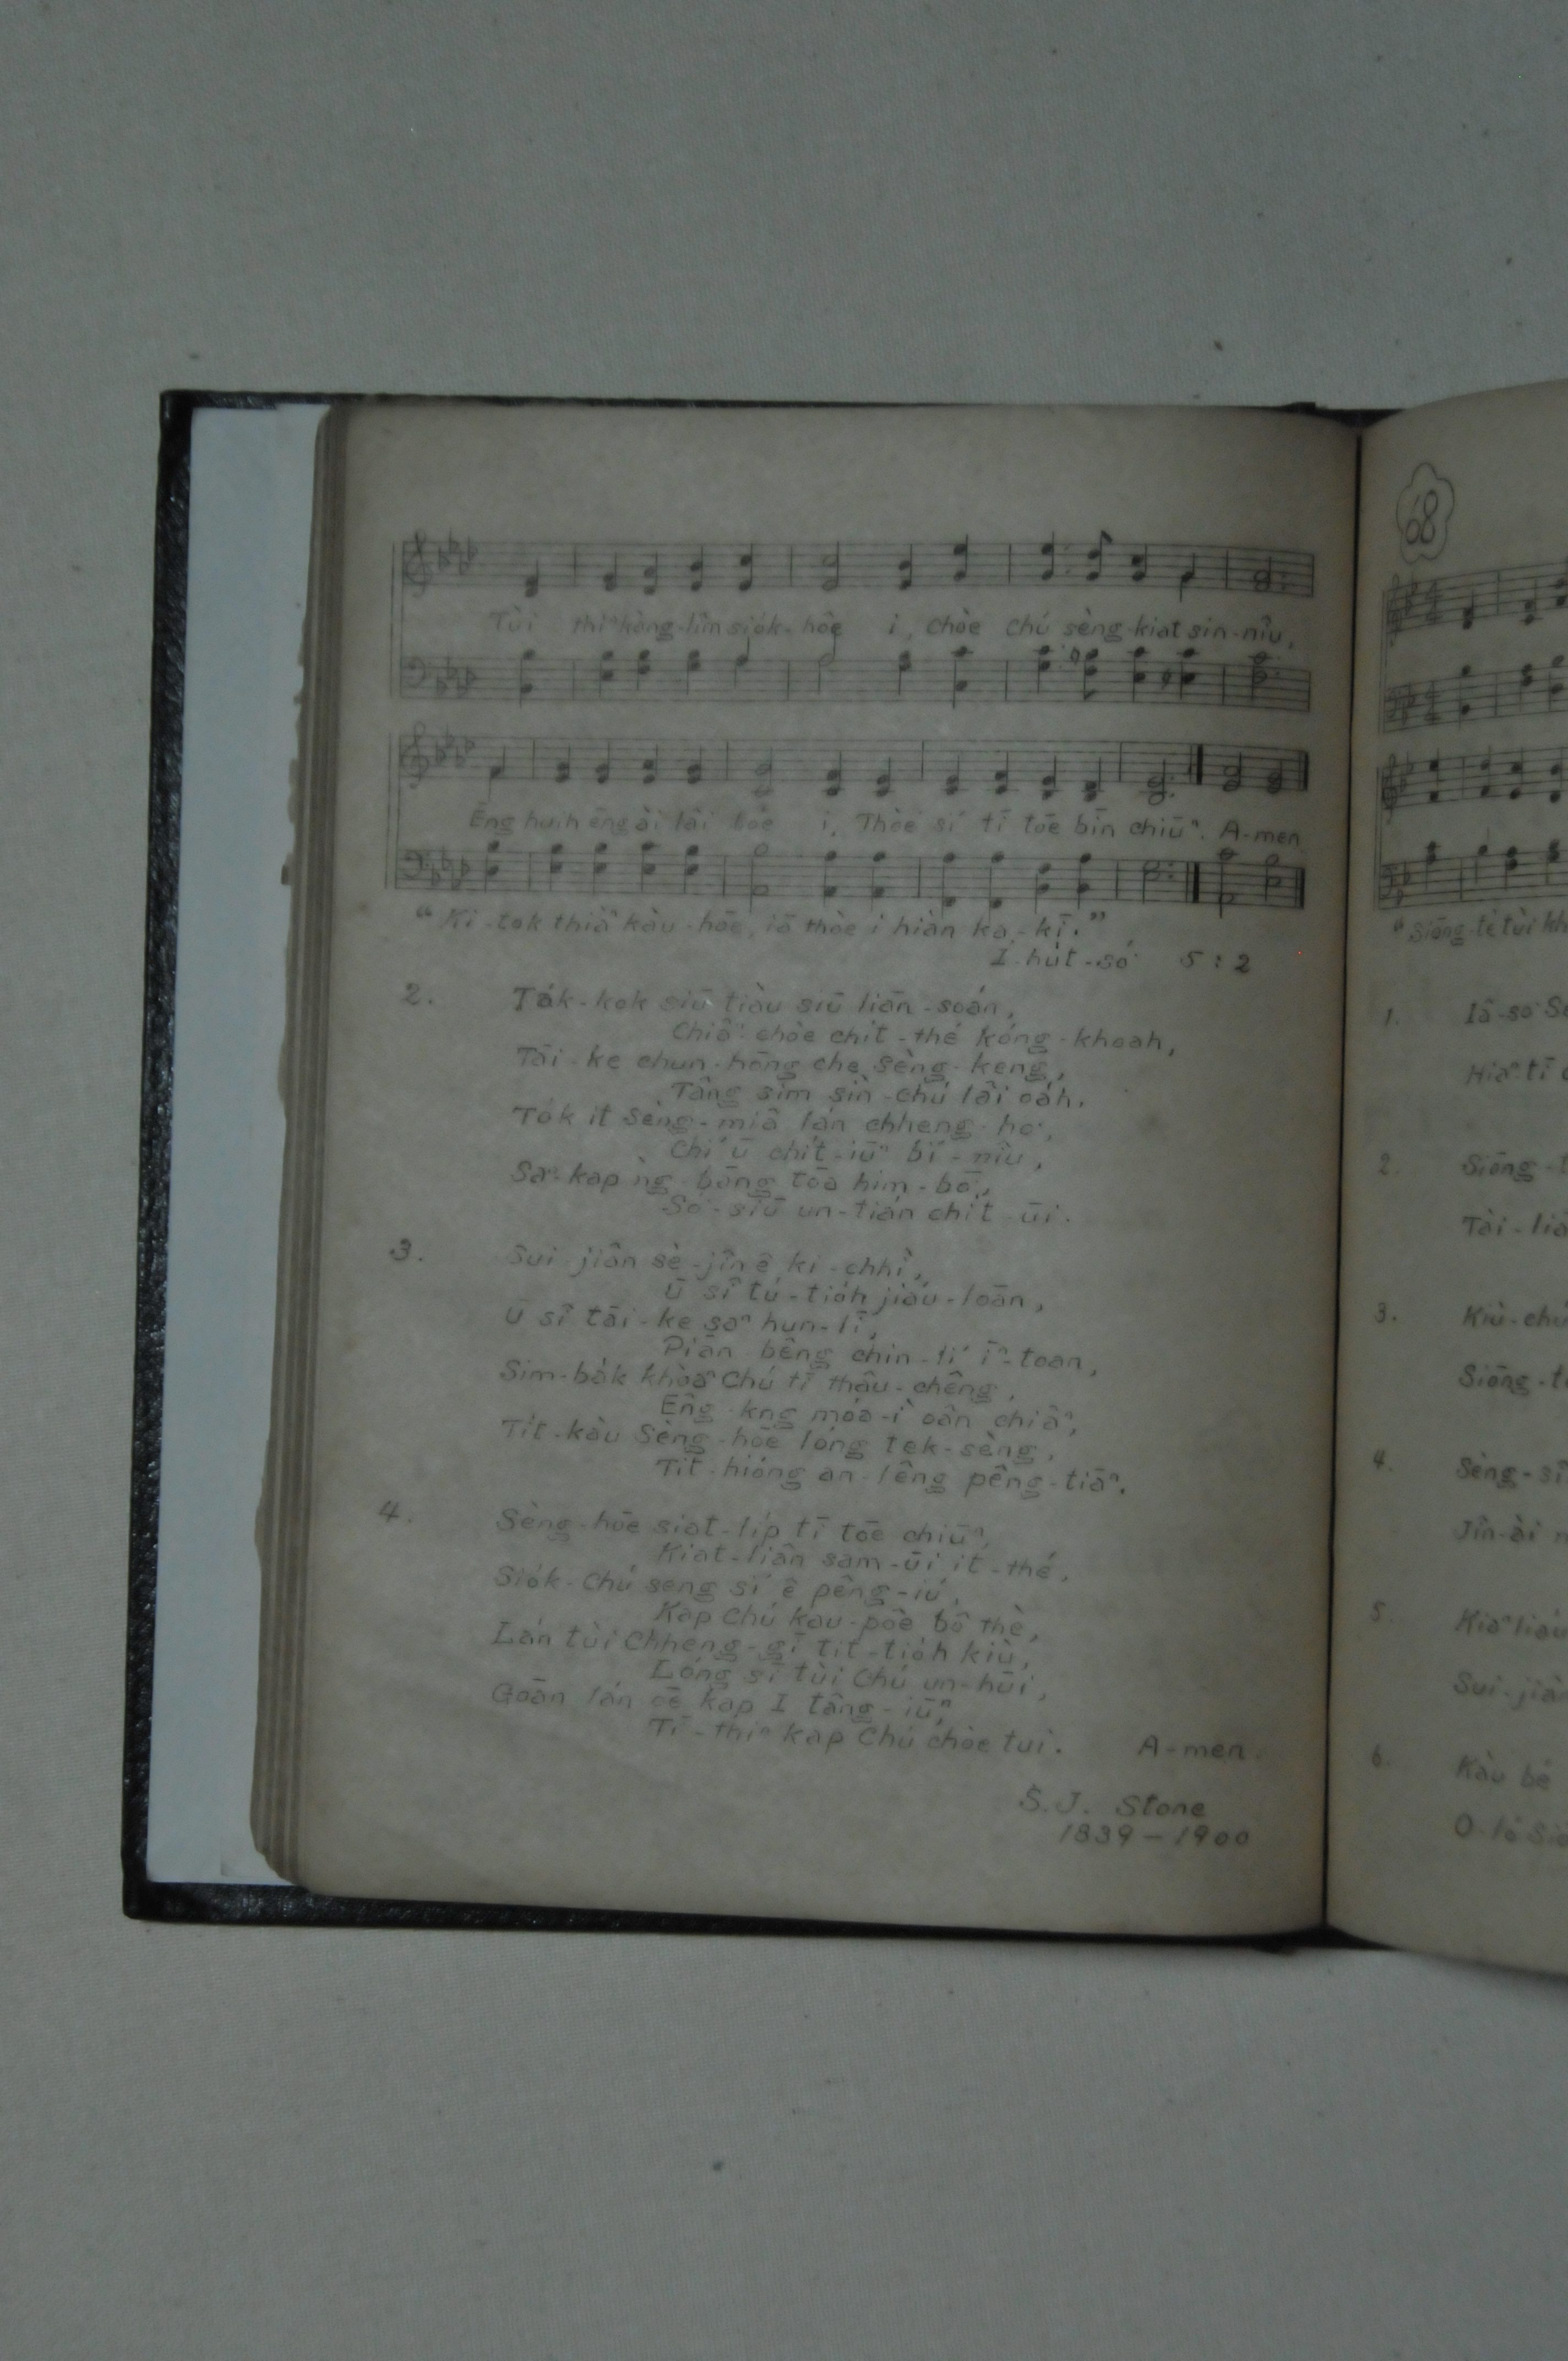 Tùi thiⁿ kàng-lîm siók-hôe i, chòe chú sèng-kiat sin-niû.
Ēng huih ēng ài lâi bóe i, Thòe sí tī tōe bīn chiūⁿ. A-men
"Ki-tok thiàⁿ kàu-hōe, iā thòe i hiàn ka-kī."
Í-hut-só͘ 5:2
2. Ta̍k-kok siū tiàu siū liân-soán,
Chiâⁿ-chòe chi̍t-thé kóng-khoah,
Tāi-ke chun-hōng che sèng-keng,
Tâng sim sìn-chú lâi oa̍h.
To̍k it Sèng-miâ lán chheng-ho͘,
Chí ū chi̍t-iūⁿ bí-niû,
Saⁿ-kap ǹg-bāng tōa him-bō͘,
Só͘-siū un-tián chi̍t-ūi.
3. Sui jiân sè-jîn ê ki-chhì,
Ū sî tú-tio̍h jiáu-loān,
Ū sî tāi-ke saⁿ hun-lī,
Piān-bêng chin-lí ī-toan,
Sim-ba̍k khòaⁿ Chú tī thâu-chêng,
Êng-kng móa-ì oân chiâⁿ,
Ti̍t-kàu Sèng-hōe lóng tek-sèng,
Tit-hióng an-lêng pêng-tiāⁿ.
4. Sèng-hōe siat-li̍p tī tōe chiūⁿ,
Kiat-liân sam-ūi it-thé,
Sio̍k-Chú seng sí ê pêng-iú,
Kap Chú kau-pôe bô thè,
Lán tùi Chheng-gī tit-tio̍h kiù,
Lóng sī tùi Chú un-hūi,
Goān lán oē kap I tâng-iūⁿ,
Tī-thiⁿ kap Chú chòe tui. A-men.
S.J. Stone
1839-1900
68
"Siōng-tè tùi
1. Iâ-so͘
Hiaⁿ-tī
2. Siōng-
Tài-
3. Kiù-
Siōng-
4. Sèng-
Jîn-ài
5. Kiaⁿ liáu
Sui-jiân
6. Kàu bé
O-ló